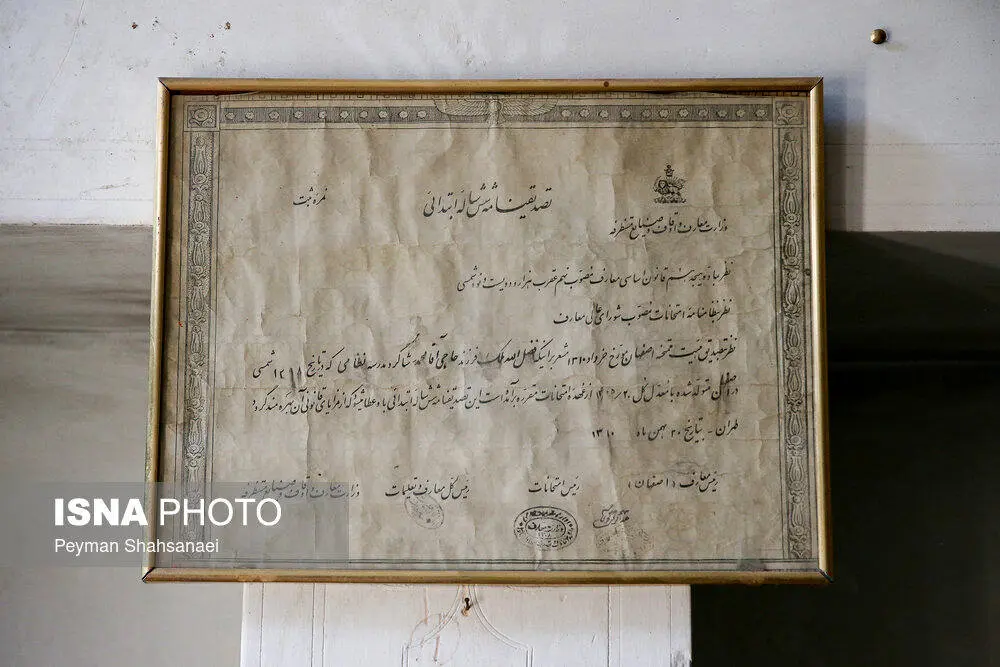 تصدیقنامه شش ساله ابتدائی
نمره ثبت
وزارت معارف و اوقاف و صنایع مستظرفه
نظر بماده بیجدهم قانون اساسی معارف مصوب نهم عقرب هزار و دویست و نود شمسی
نظر بنظامنامه امتحانات مصوب شورای عالی معارف
نظر بتصدیق هیئت ممتحنه اصفهان مورخ خرداد ۱۳۱۰ مشعر بر اینکه فضل الله فرزند حاجی آقا محمد شاگرد مدرسه نظامی که در تاریخ شمسی
در اصفهان متولد شده با معدل کل از عهده امتحانات مقرره برآمده است این تصدیقنامه شش ساله ابتدائی باو عطا میشود که از مزایای قانونی آن بهره مند گردد
طهران - بتاریخ ۲۰ بهمن ماه ۱۳۱۰
رئیس معارف (اصفهان)
رئیس امتحانات
رئیس کل معارف و تعلیمات
وزارت معارف و اوقاف و صنایع مستظرفه
ISNA PHOTO
Peyman Shahsanaei